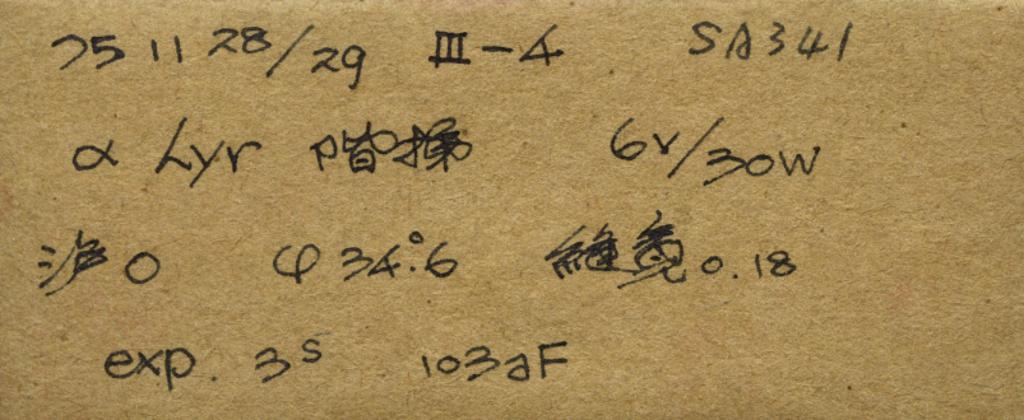 75 11 28/29 III-4 SA341
α Lyr 阶梯 6V/30W
沪0 φ34°.6 缝宽0.18
exp. 3s 103aF